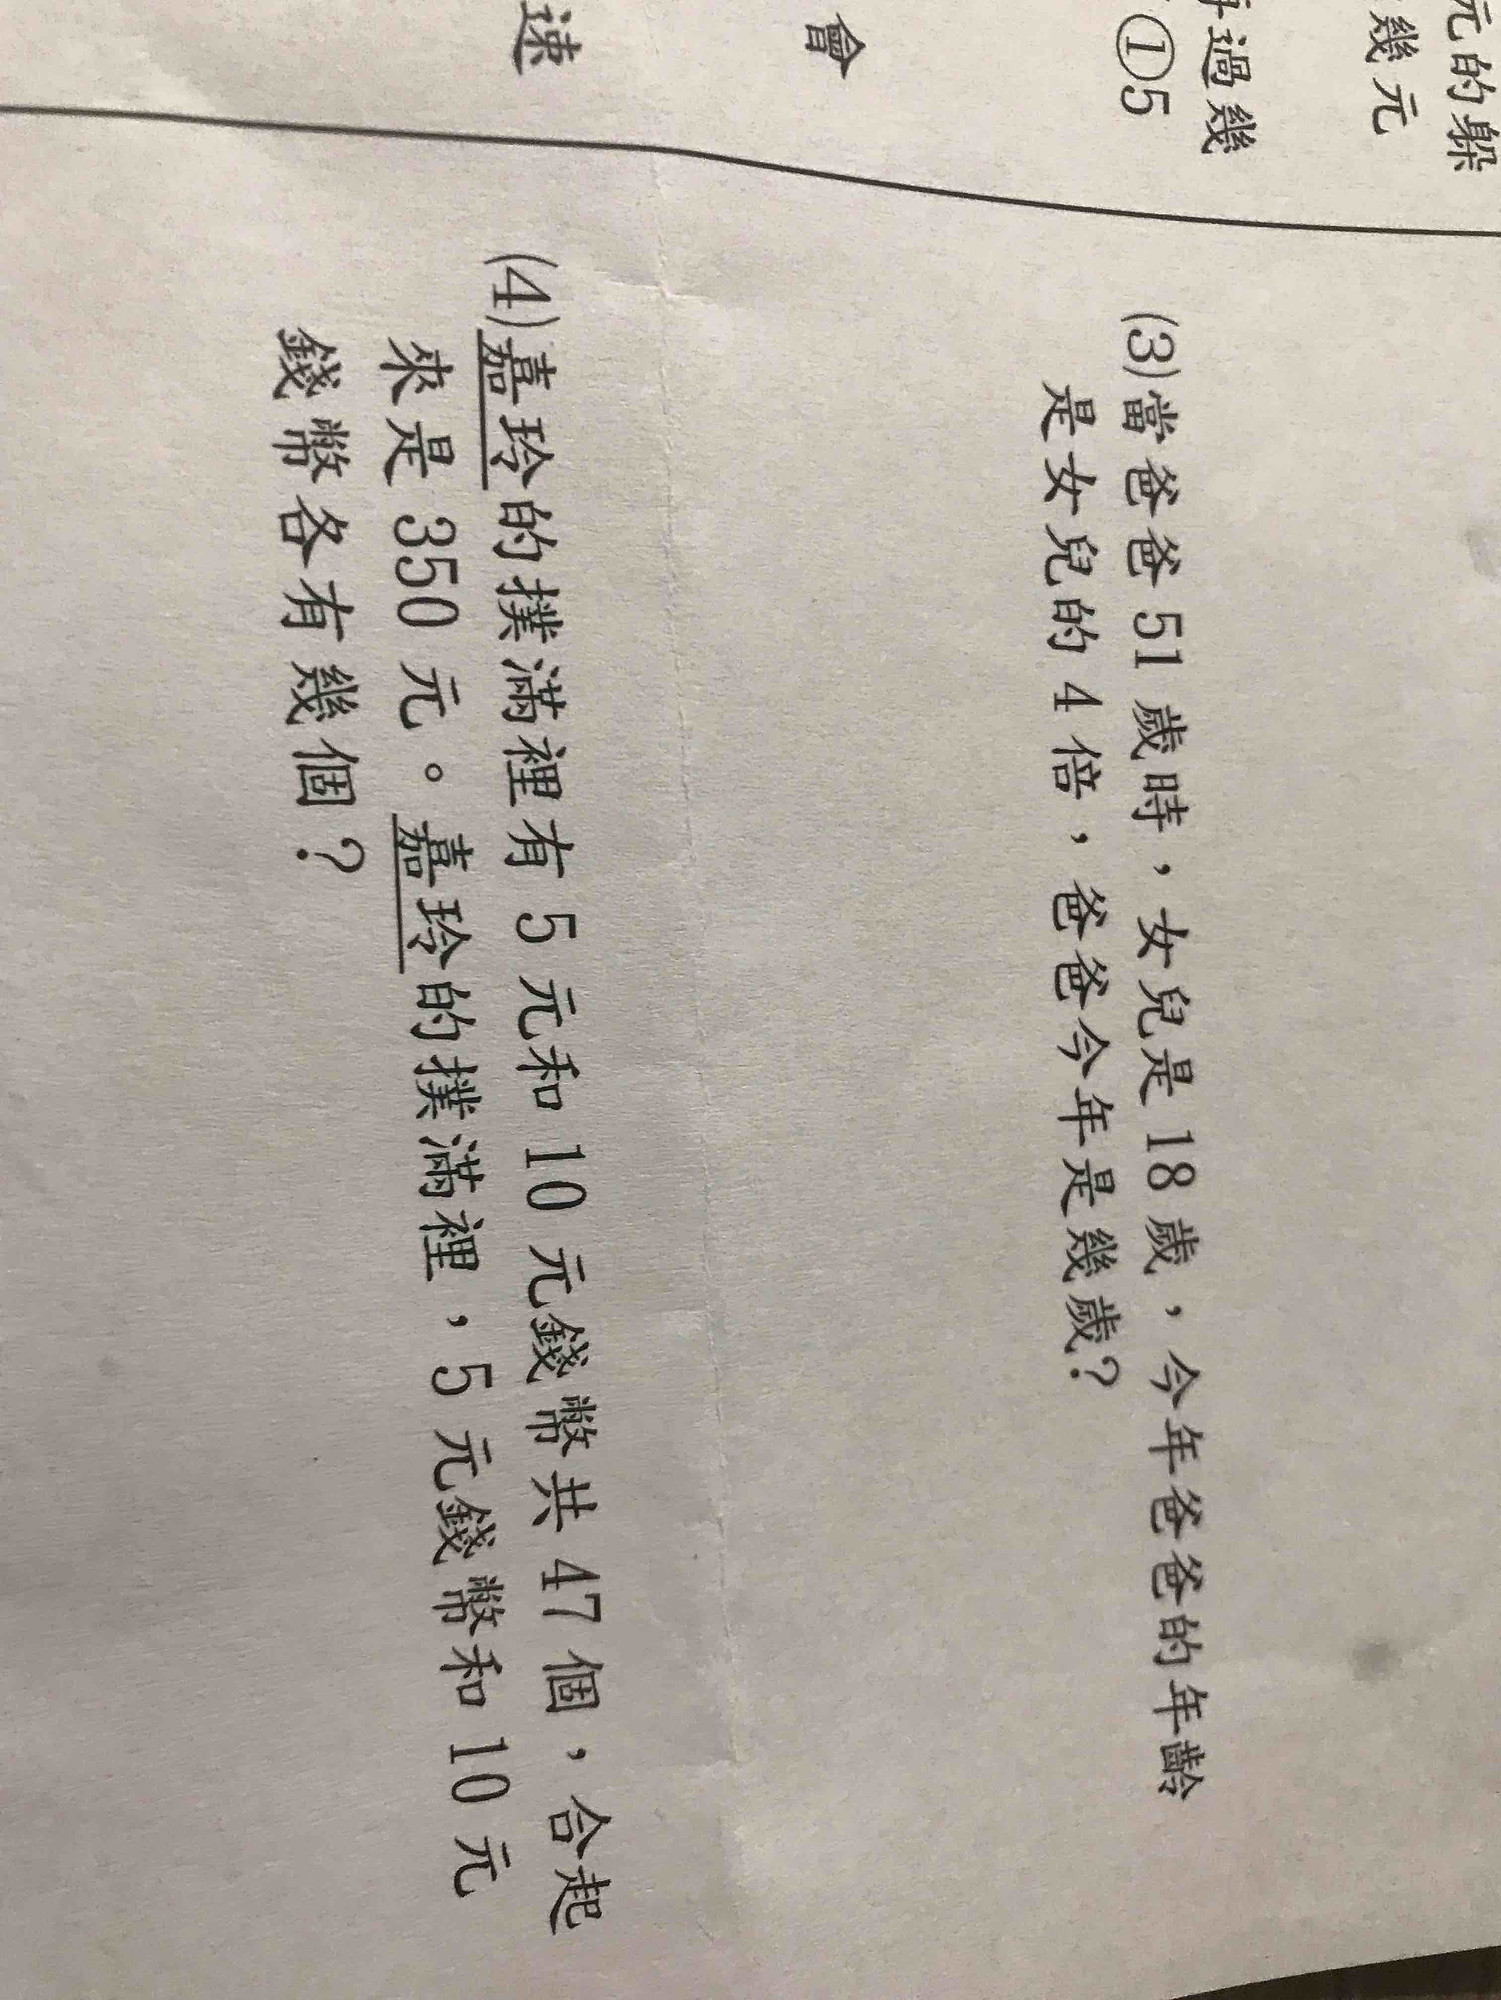 元的躲
幾元
過幾
①5
會
速
(3)當爸爸 51 歲時，女兒是 18 歲，今年爸爸的年齡
是女兒的 4 倍，爸爸今年是幾歲？
(4)嘉玲的撲滿裡有 5 元和 10 元錢幣共 47 個，合起
來是 350 元。嘉玲的撲滿裡，5 元錢幣和 10 元
錢幣各有幾個？